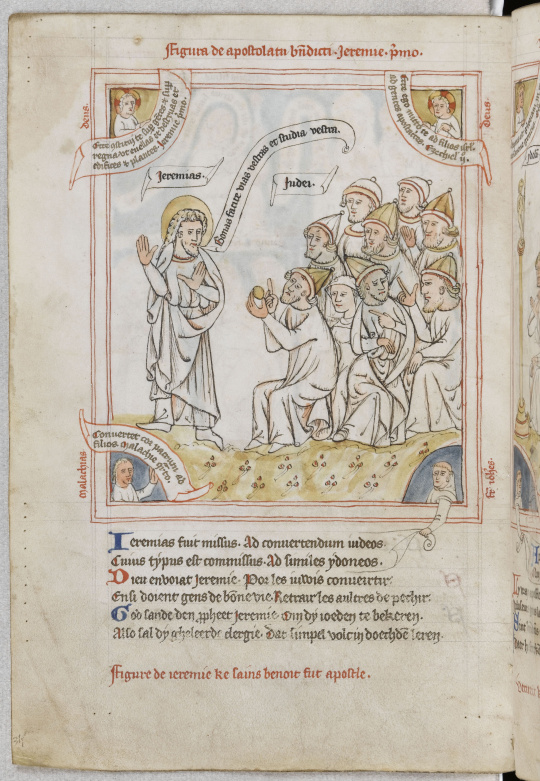 Figura de apostolatu bn̄dicti. Jeremie. pͥmo.
deus.
Ecce constitui te sup gentes et sup
regna ut euellas et destruas et
edifices et plantes. Jeremie pͥmo.
deus.
Ecce ego mitto te ad filios isrl.
ad gentes apostatrices. Ezechiel. ij.
Jeremias.
Bonas facite vias vestras et studia vestra.
Judei.
malachias
Conuertet cor patrum ad
filios. malachie
Ieremias fuit missus. Ad conuertendum iudeos.
Cuius typus est commissus. Ad similes ydoneos.
Dieu enuoiat Jeremie. Por les iuwis conuertir.
Ensi doient gens de bone vie. Retrair les aultres de pechir.
God sande den ꝓpheet Jeremie. Om dy ioeden te bekeren.
Also sal dy gheleerde clergie. Dat simpel volc in doechden leren.
Figure de ieremie ke sains benoit fut apostle.